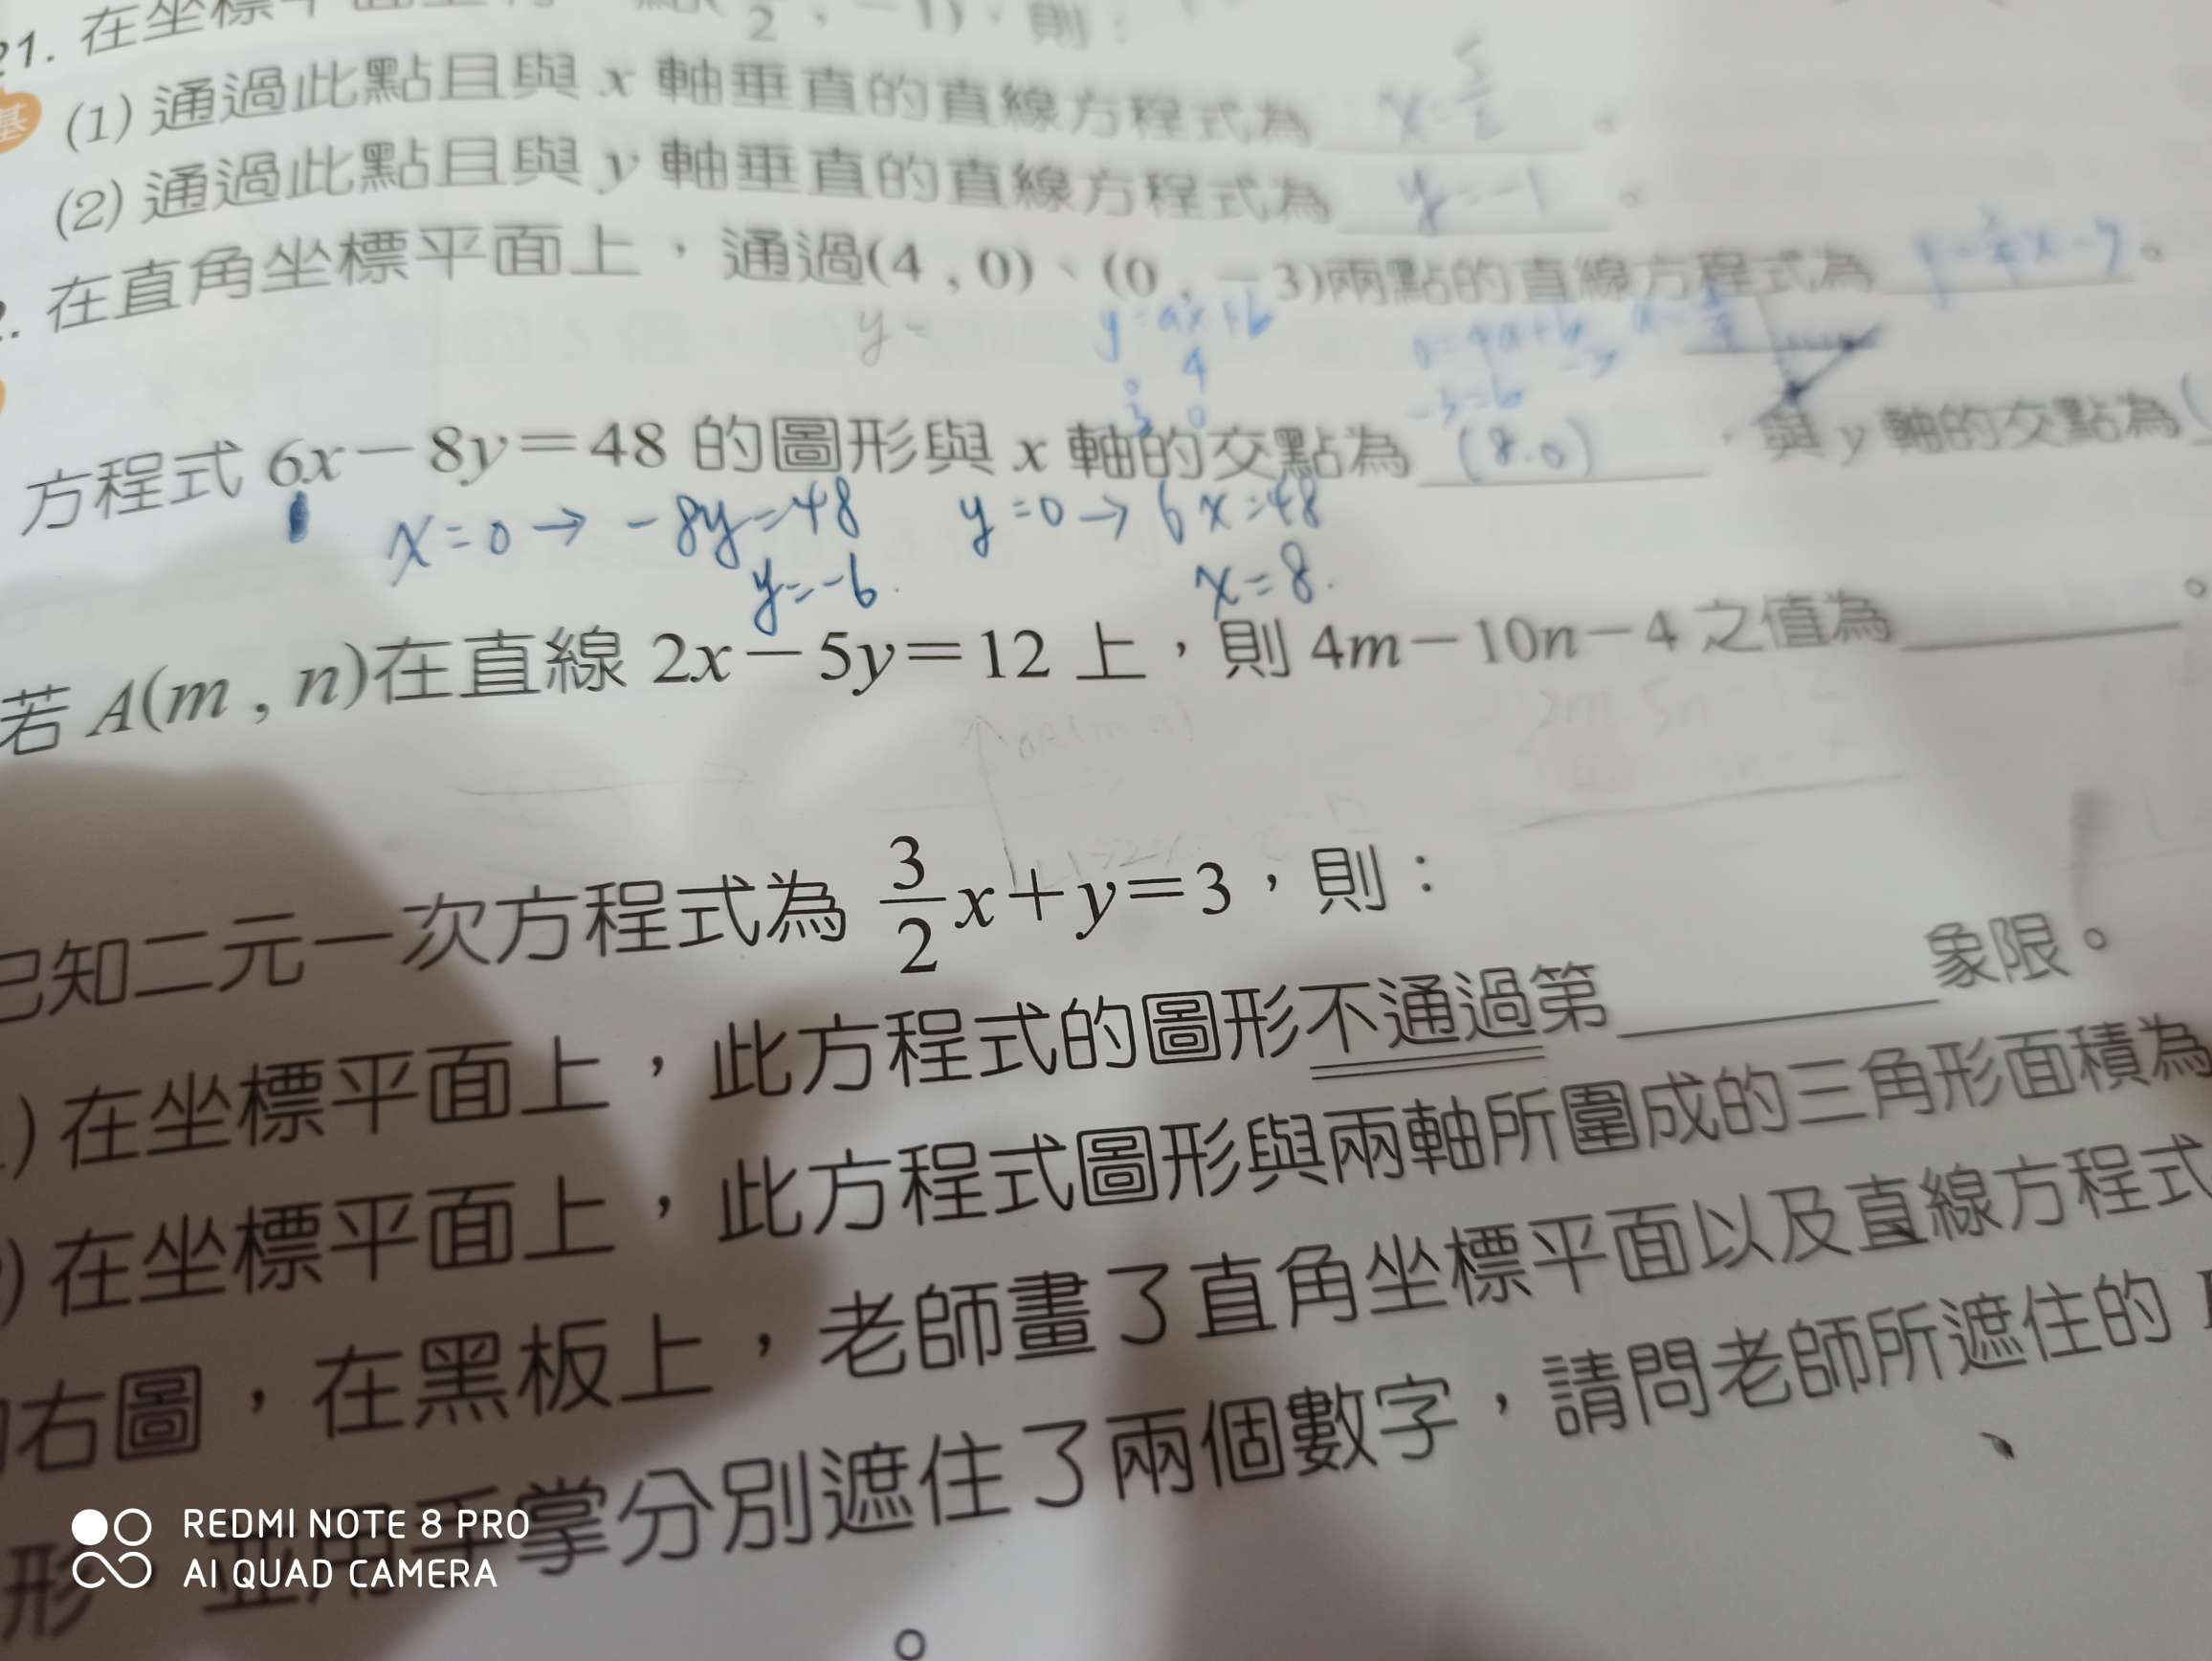 21. 在坐標平面上有一點(5/2 , −1)，則：
基 (1) 通過此點且與 x 軸垂直的直線方程式為 x=5/2 。
(2) 通過此點且與 y 軸垂直的直線方程式為 y=-1 。
2. 在直角坐標平面上，通過(4 , 0)、(0 , −3)兩點的直線方程式為
y=
y=ax+b
4
0
3 0
0=4a+b
-3=b
方程式 6x−8y=48 的圖形與 x 軸的交點為 (8.0) ，與 y 軸的交點為(
x=0→ -8y=48 y=0→ 6x=48
y=-6. x=8.
若 A(m , n)在直線 2x−5y=12 上，則 4m−10n−4 之值為 。
已知二元一次方程式為 3/2 x+y=3，則：
) 在坐標平面上，此方程式的圖形不通過第 象限。
) 在坐標平面上，此方程式圖形與兩軸所圍成的三角形面積為
右圖，在黑板上，老師畫了直角坐標平面以及直線方程式
形，並用手掌分別遮住了兩個數字，請問老師所遮住的
。
REDMI NOTE 8 PRO
AI QUAD CAMERA